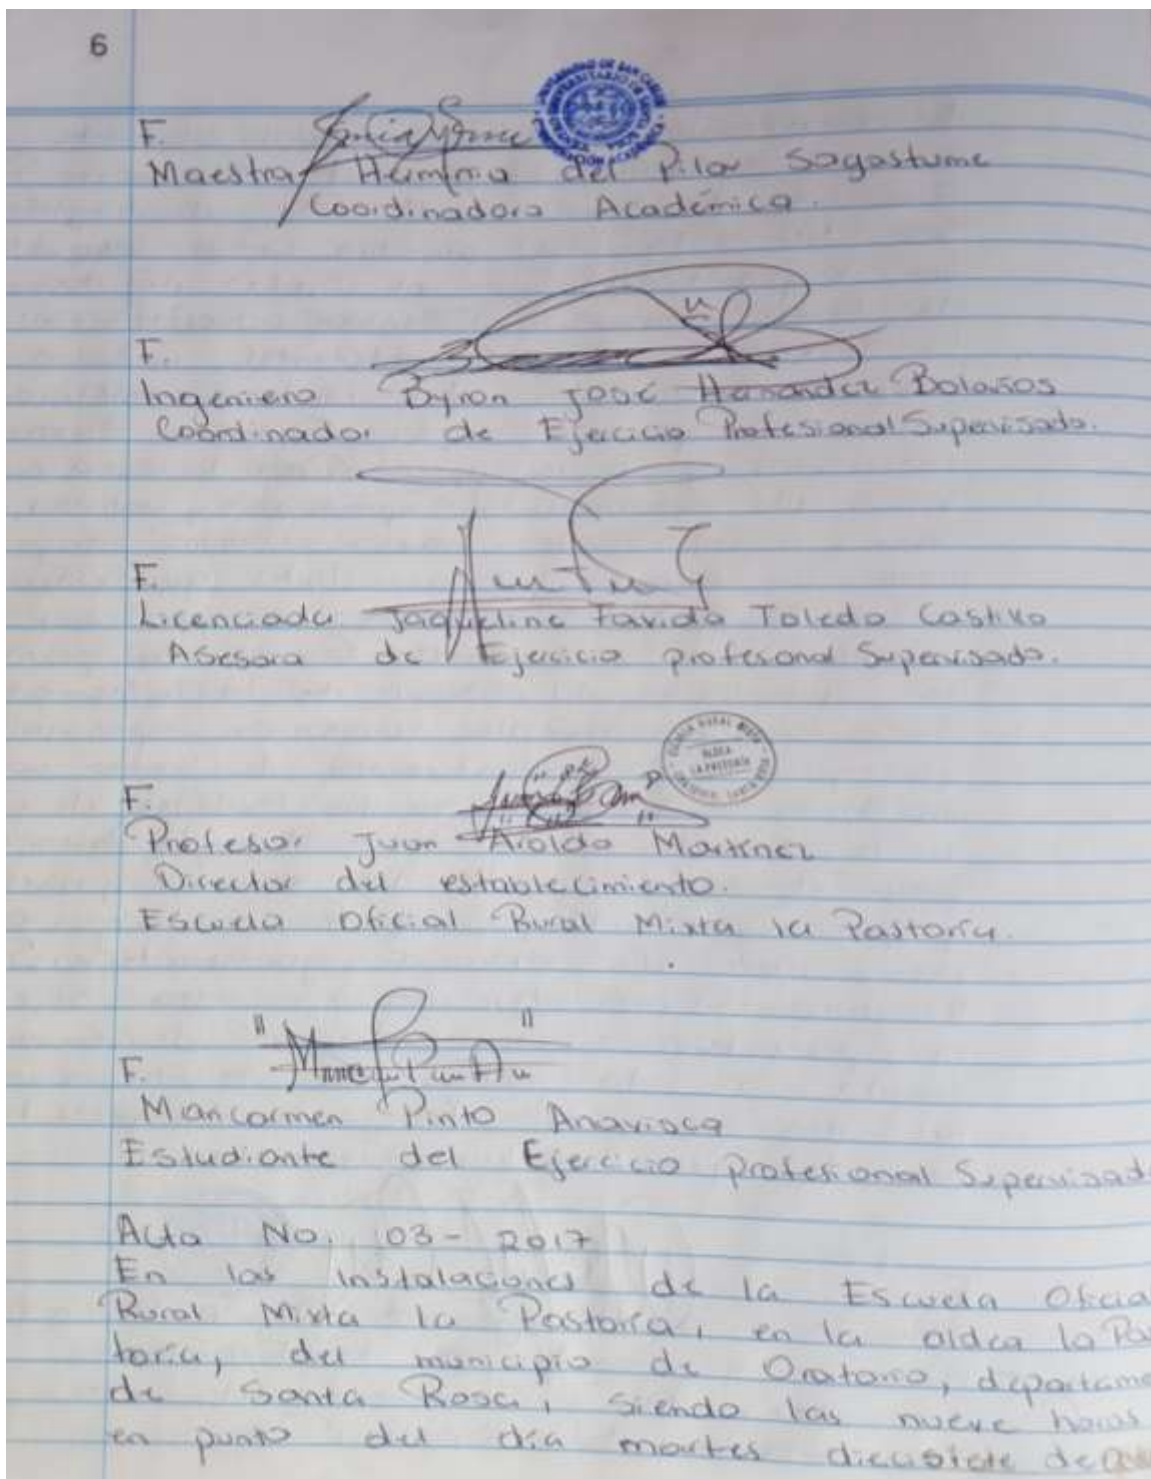 6
F.
Maestra Herminia del Pilar Sagastume
Coordinadora Académica.
F.
Ingeniero Byron José Hernández Bolaños
Coordinador de Ejercicio Profesional Supervisado.
F.
Licenciada Jaqueline Favida Toledo Castillo
Asesora de Ejercicio profesional Supervisado.
F.
Profesor Juan Aroldo Martínez
Director del establecimiento.
Escuela Oficial Rural Mixta la Pastoría.
F.
Maricarmen Pinto
Estudiante del Ejercicio profesional Supervisad
Acta No. 03-2017
En las instalaciones de la Escuela Oficia
Rural Mixta la Pastoría, en la aldea la Pas
toría, del municipio de Oratorio, departame
de Santa Rosa, siendo las nueve horas
en punto del día martes diecisiete de